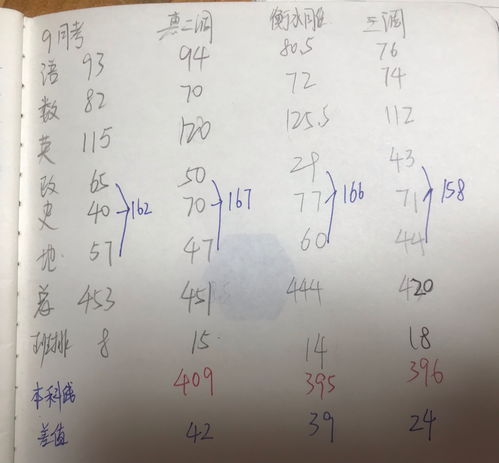 9月考 真二调 衡水 三调
语 93 94 80.5 76
数 82 70 72 74
英 115 120 125.5 112
政 65 50 29 43
史 40 162 70 167 77 166 71 158
地 57 47 60 44
总 453 451 444 420
班排 8 15 14 18
本科线 409 395 396
差值 42 39 24